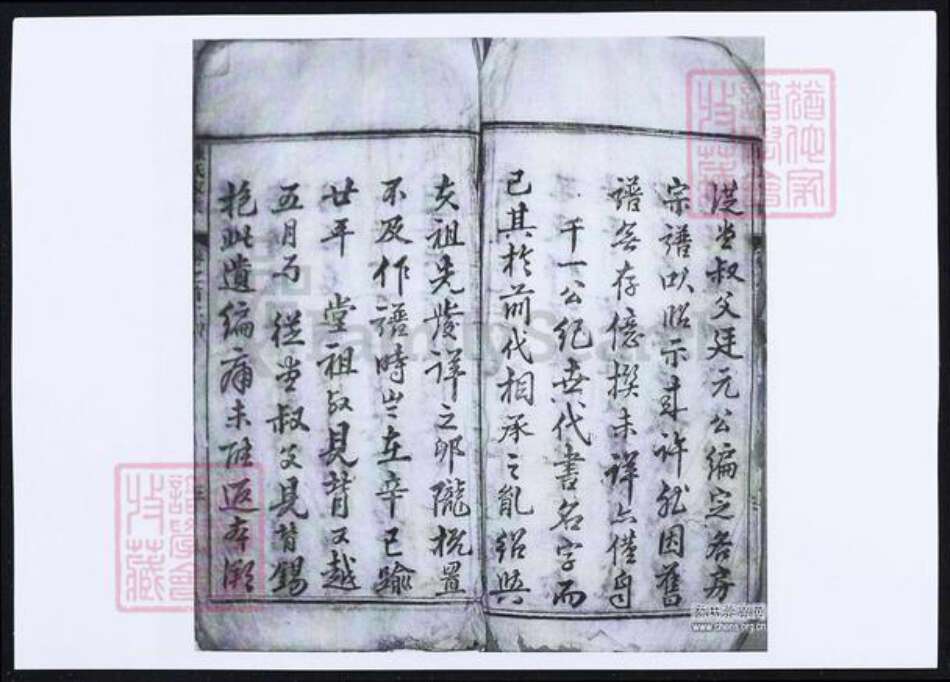 從堂叔父廷元公編定各房
宗譜以昭示來許形因舊
譜無存億撰未詳亦僅自
千一公紀世代書名字而
已其於前代相承之亂紹與
夫祖先發詳之邱隴概置
不及作譜時在辛巳踰
廿年 堂祖叔見背又越
五月而從堂叔父見背錫
抱此遺編痛未能返本溯
www.chens.org.cn
FamilySearch